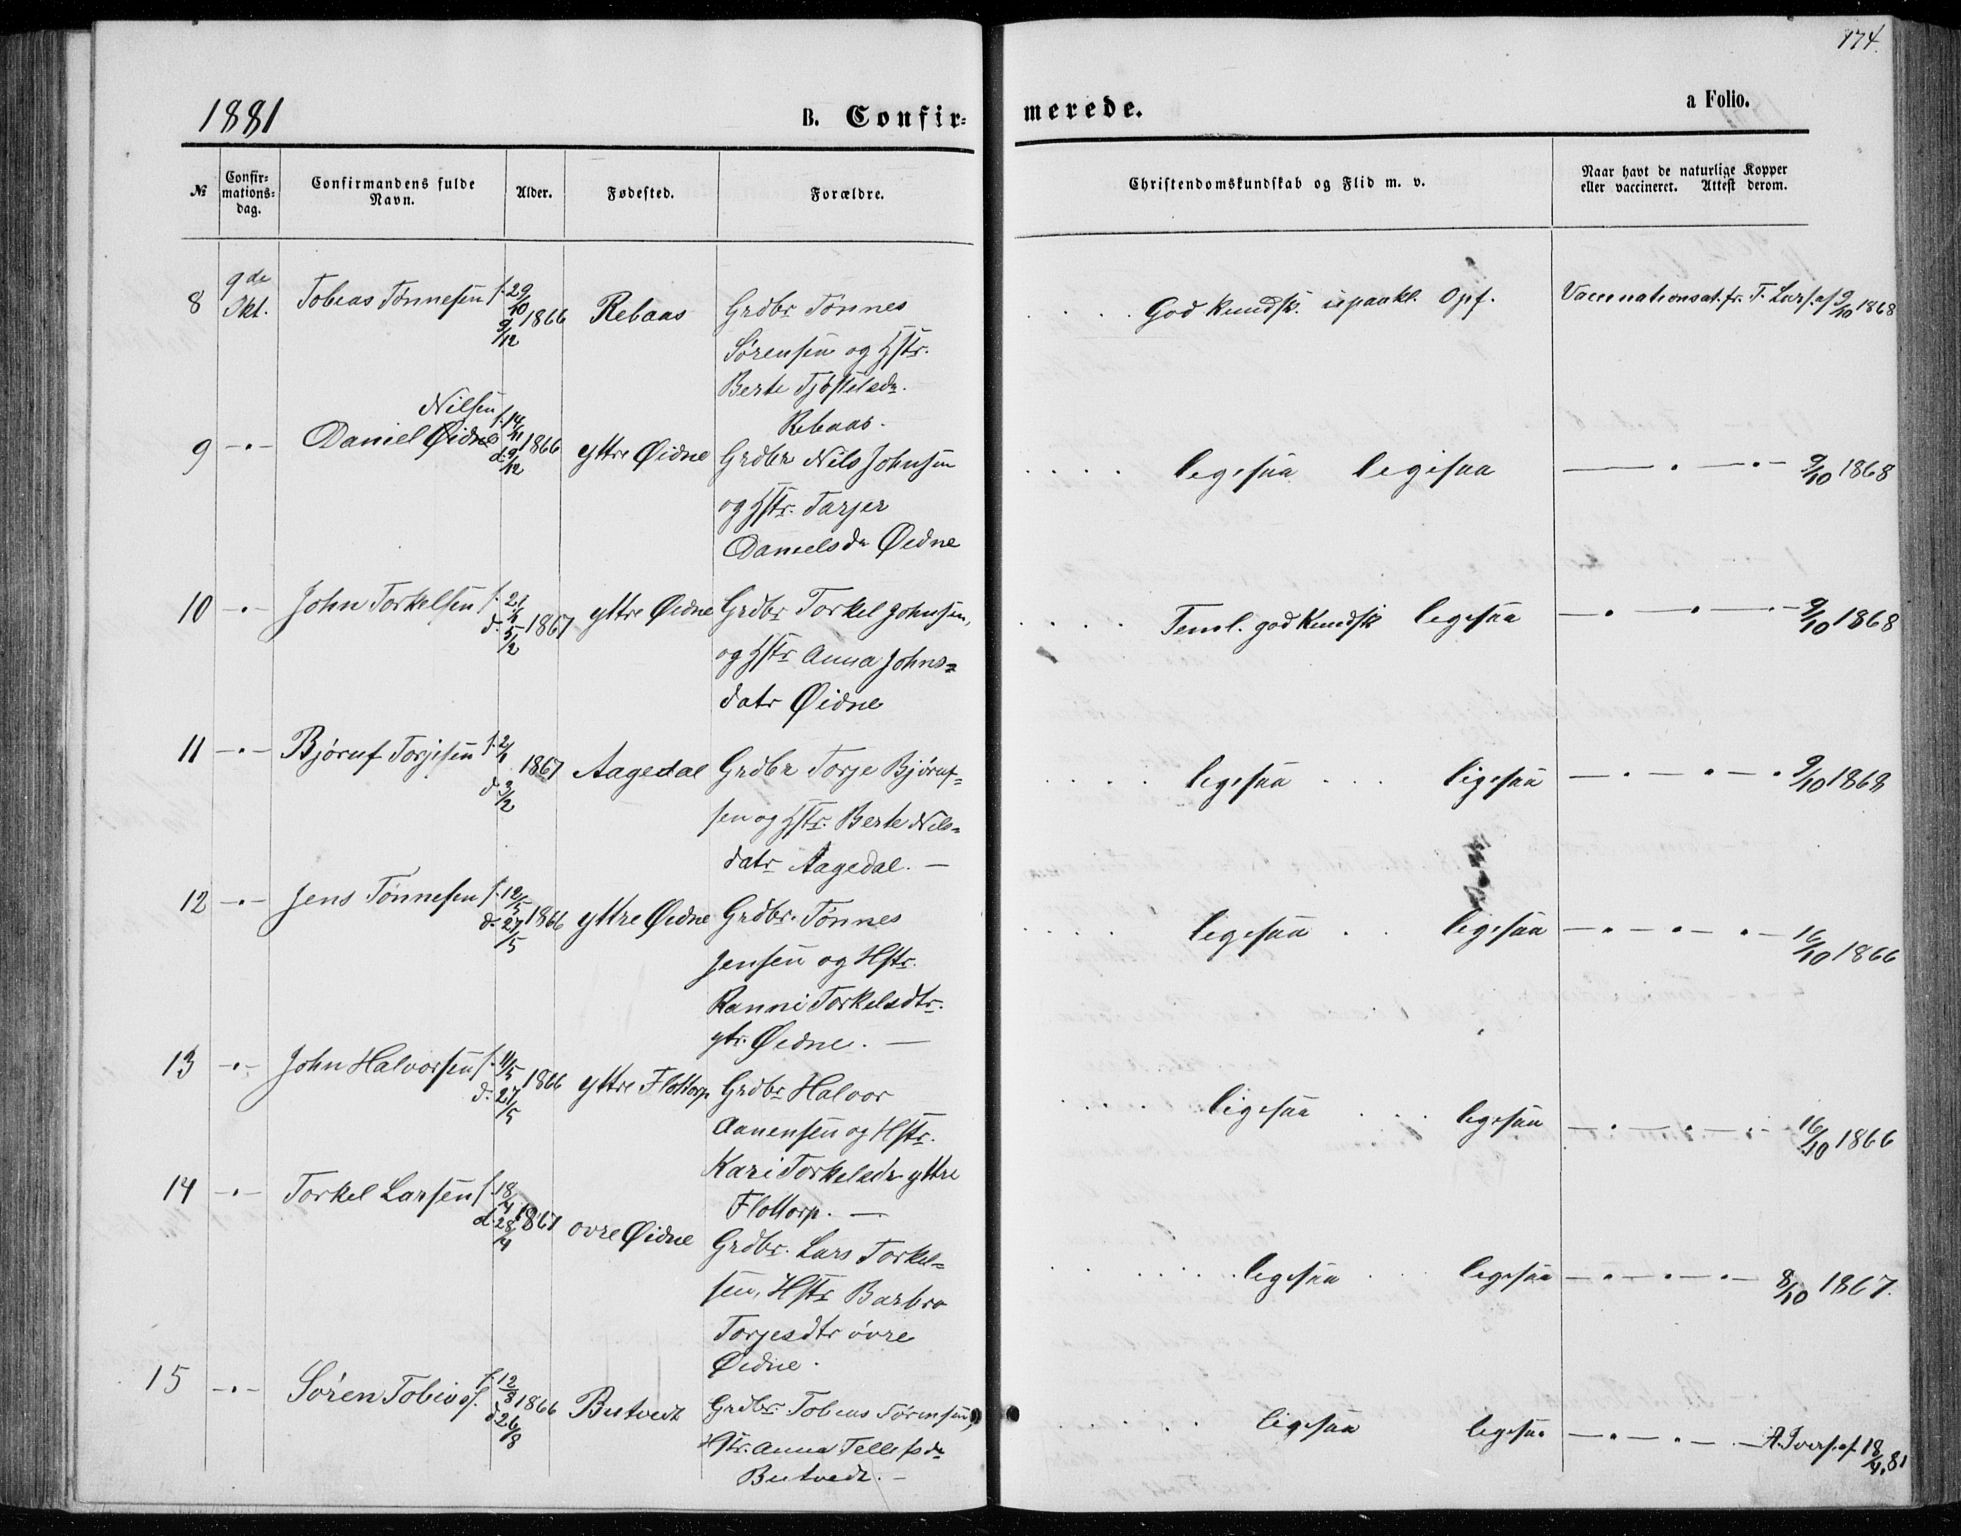 174.
1881
B. Confir-
merede.
a Folio.
№
Confir-
mations-
dag.
Confirmandens fulde
Navn.
Alder.
Fødested.
Forældre.
Christendomskundskab og Flid m. v.
Naar havt de naturlige Kopper
eller vaccineret. Attest derom.
8 9de Okt. Tobias Tønnesen f. 29/10 1866 9/12 Rebaas Grdbr Tønnes
Sørensen og Hstr.
Berte Tjøstelsdr.
Rebaas.
God Kundsk. upaakl. Opf. Vaccinationsat. fr. T. Lars. af 9/10 1868
9 -"- Daniel Nilsen Øidne f. 14/11 1866 d. 9/12 yttre Øidne Grdbr Nils Johnsen
og Hstr. Tarjer
Danielsdr Øidne
ligesaa ligesaa -"- 9/10 1868
10 -"- John Torkelsen f. 21/1 1867 d. 5/2 yttre Øidne Grdbr Torkel Johnsen,
og Hstr Anna Johns-
datr Øidne
Teml. god Kundsk ligesaa -"- 9/10 1868
11 -"- Bjøruf Torjesen f. 2/1 1867 d. 3/2 Aagedal Grdbr Torje Bjøruf-
sen og Hstr. Berte Nils-
datr Aagedal. -
ligesaa ligesaa -"- 9/10 1868
12 -"- Jens Tønnesen f. 12/5 1866 d. 27/5 yttre Øidne Grdbr. Tønnes
Jensen og Hstr.
Ranni Torkelsdtr.
ytr. Øidne. -
ligesaa ligesaa -"- 16/10 1866
13 -"- John Halvorsen f. 11/5 1866 d. 27/5 yttre Flottorp Grdbr Halvor
Aanensen og Hstr.
Kari Torkelsdr yttre
Flottorp. -
ligesaa ligesaa -"- 16/10 1866
14 -"- Torkel Larsen f. 18/4 1867 d. 28/4 øvre Øidne Grdbr. Lars Torkel-
sen, Hstr Barbro
Torjesdtr øvre
Øidne.
ligesaa ligesaa -"- 8/10 1867.
15 -"- Søren Tobiasf. f. 12/8 1866 d. 26/8 Butvedt Grdbr. Tobias Sørensen,
Hstr. Anna Tellefsdr
Butvedt. -
ligesaa ligesaa -"- A. Ivers. af 18/4.81